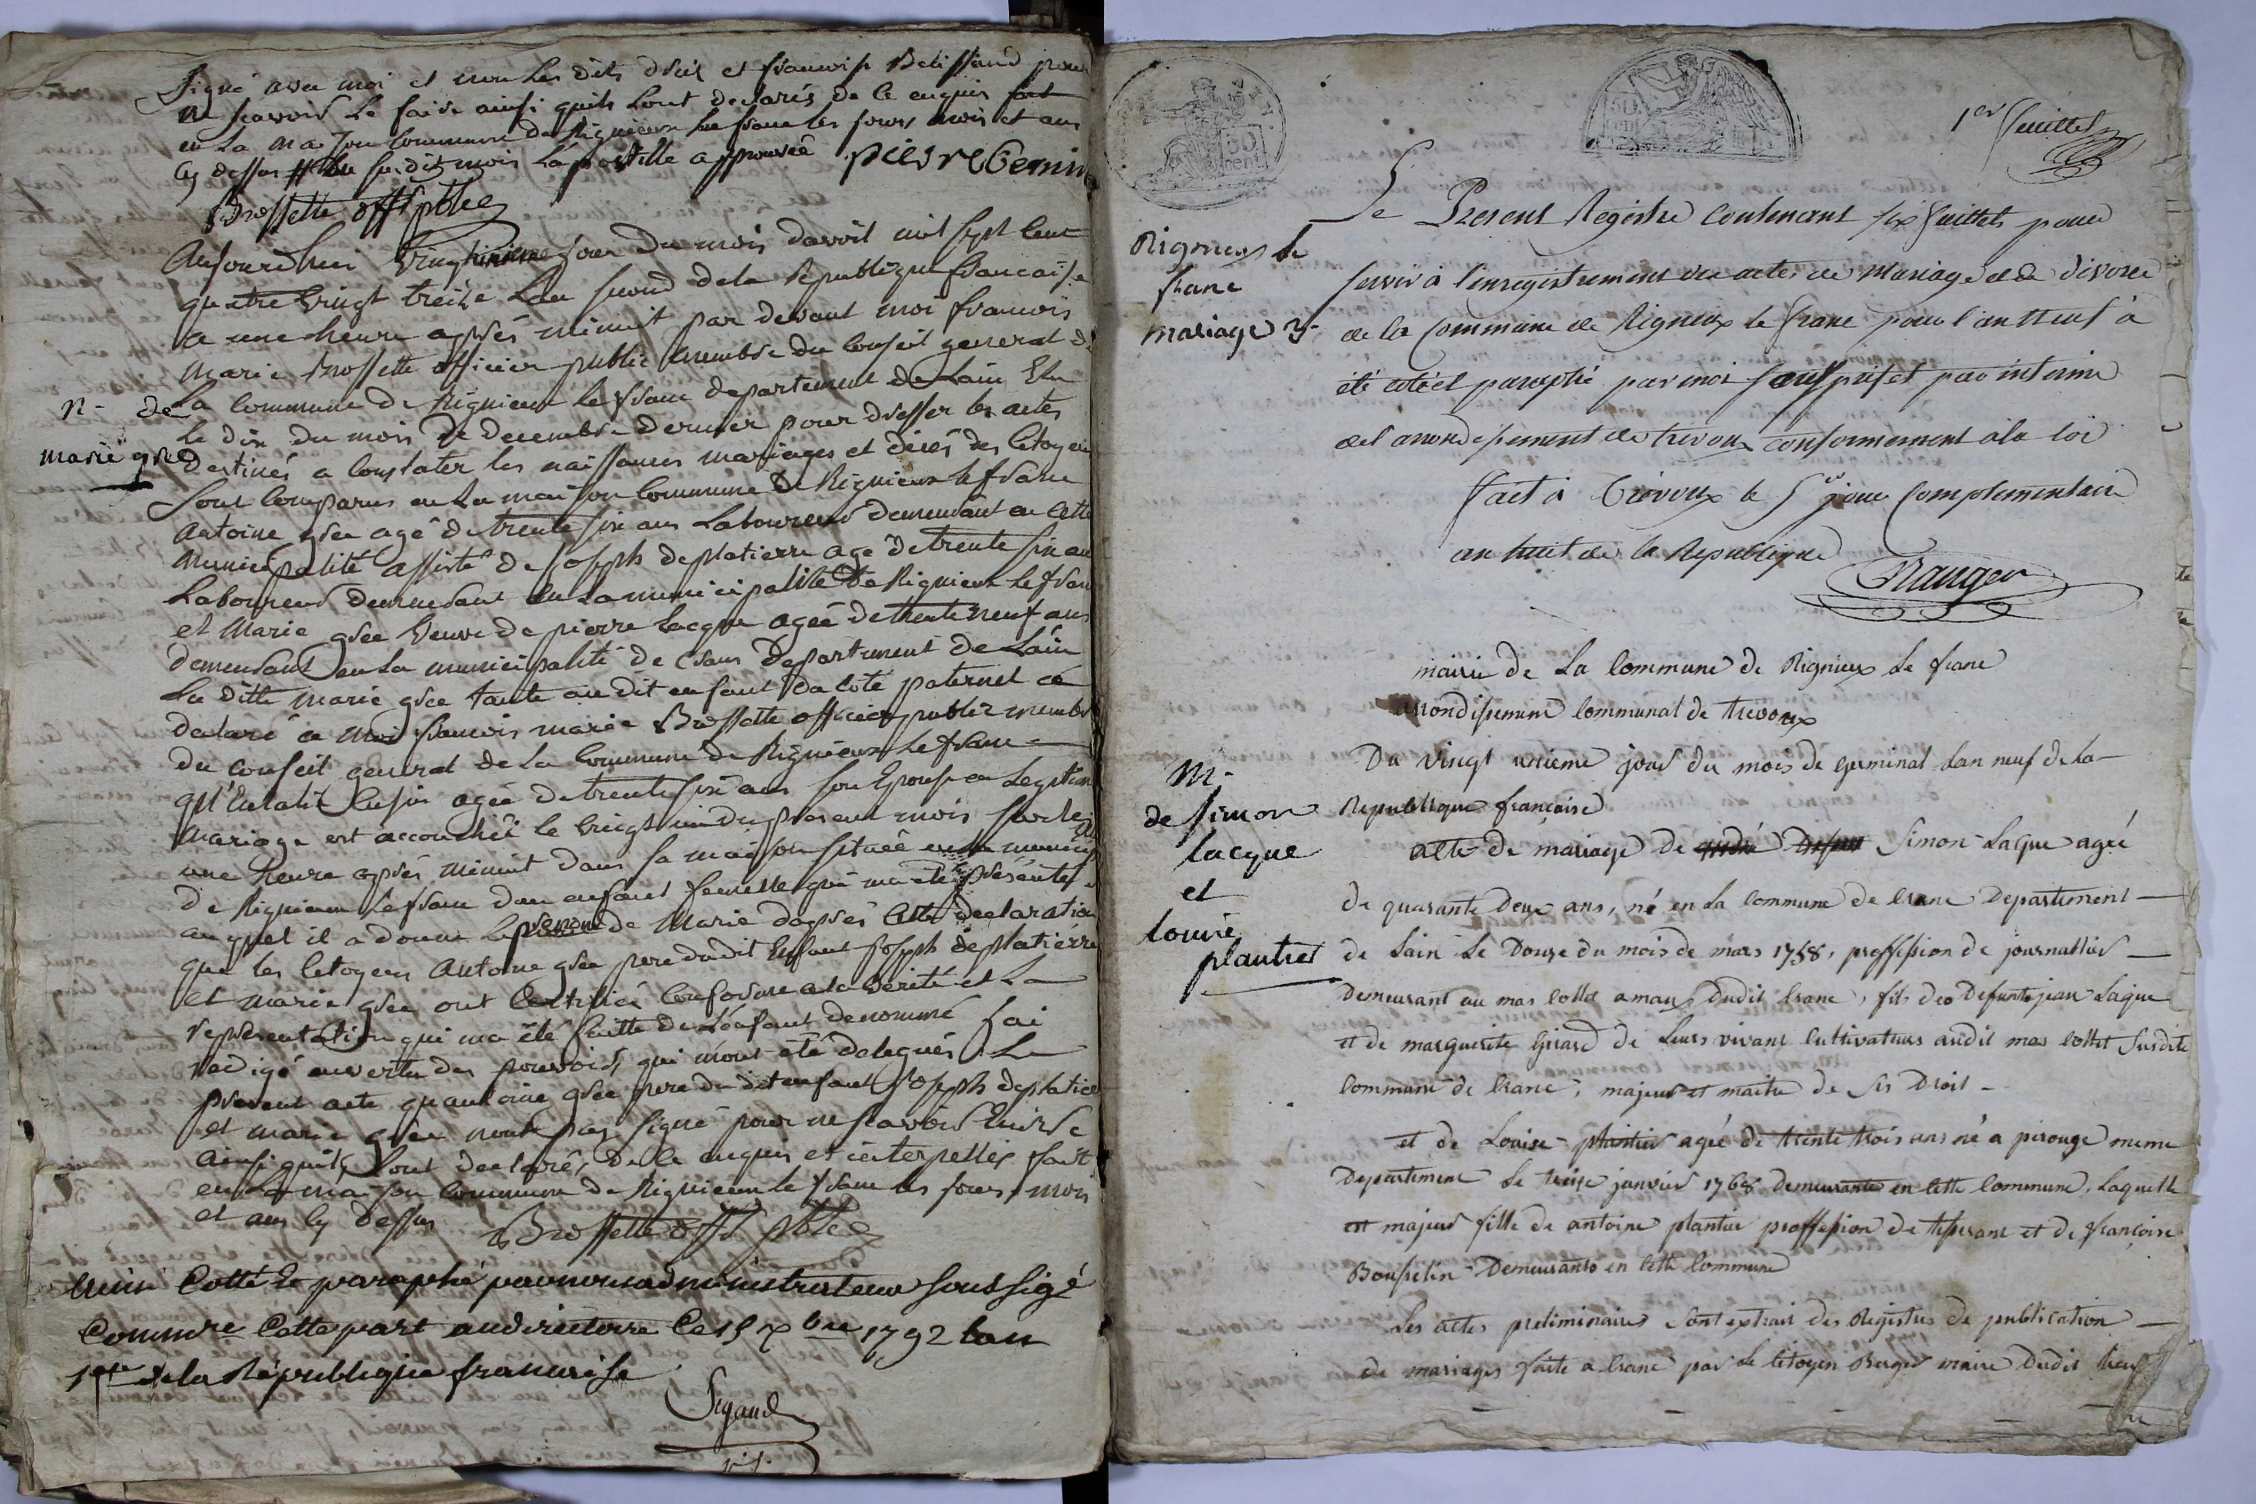 Signé avec moi et non les dits druis et francois Belissand pour
ne scavoir le faire ainsi quils lont declarés de ce enquis fait
en la maison commune de Rignieux le franc les jours mois et an
cy dessus susdit mois lapostille approuvée pierre Cernin
Brossette offr plic
Aujourdhui vingtunieme jour du mois davril mil sept cent
quatre vingt treize lan second de la Republique francaise
a une heure apprés minuit par devant moi francois
marie Brossette officier public membre du Conseil general de
la Commune de Rignieux le franc departement de Lain Elu
le dix du mois de decembre dernier pour dresser les actes
N - de
marie gré
destinés a Constater les naissances mariages et décés des Citoyens
Sont Comparus en la maison Commune de Rignieux le franc
antoine grée agé de trente six ans Laboureur demeurant en Cette
municipalité assisté de joseph deplatierre agé de trente six ans
Laboureur demeurant en la municipalité de Rignieux le franc
et Marie grée veuve de pierre Lacque agée de trente neuf ans
demeurant en la municipalité de Crans departement de Lain
la ditte marie grée tante au dit enfant du coté paternel a
declaré a moi francois marie Brossette officier public membre
du Conseil general de la Commune de Rignieux le franc -
qu'Eulalie agée de trente six ans son Epouse en Legitime
mariage est accouchée le vingt un du present mois sur les
une heure apprés minuit dans sa maison située en la municip
de Rignieux le franc dun enfant femelle qui ma été présenté
auquel il a donné le prenom de Marie daprés Cette declaration
que les Citoyens antoine grée pere dudit Enfant joseph deplatierre
et marie grée ont Certifiée Conforme a la vérité et La
représentation qui ma été faitte de l'enfant denommé jai
redigé en vertu des pouvoirs qui m'ont été delegués le
present acte quantoine grée pere du dit enfant joseph deplatier
et marie grée nont pas signé pour ne scavoir Ecrire
ainsi quils lont declarés de ce enquis et interpellés fait
en la maison Commune de Rignieux le franc les jours, mois
et ans cy dessus Brossette offr plic
Cotté & paraphé par nous administrateur soussigé
Commire Cette part au directoire Ce 15 Xbre 1792 lan
1er de la République francoise
Sigaud
1er feuillet
Le Present Registre Contenant six feuillets pour
Rignieux le
franc
mariage 9.
servir à l'enregistrement des actes de Mariage et de divorce
de la Commune de Rignieux le franc pour l'an neuf à
été coté et paraphé par moi sous préfet par interim
del arrondissement de trevoux conformement à la loi
fait à Trevoux le 5e jour Complementaire
an huit de la Republique
Rauger
mairie de La Commune de Rignieux le franc
arrondissement Communal de trevoux
Du vingt unieme jour du mois de germinal Lan neuf de la -
Republique française
M -
de simon
lacque
et
louise
plantier
acte de mariage de Simon Laque agée
de quarante deux ans, né en La Commune de Crans Departement -
de Lain Le Douze du mois de mars 1758, proffession de journallier -
Demeurant au mas Collet a maux Dudit Crans, fils des Defunts jean Laque
et de marguerite Girard de Leurs vivant Cultivateurs audit mas Collet susdite
Commune de Crans, majeur et maitre de ses Droit -
et de Louise - plantier agée de trente trois ans né a perouge meme
Departement Le treize janvier 1768 demeurante en Cette Commune, Laquelle
est majeur fille de antoine plantier proffession de tisserant et de françoise
Bousselin - Demeurants en Cette Commune
Les actes preliminaires sont extrait des Registres de publication -
de mariages faite a Crans par Le Citoyen Berger maire Dudit lieu